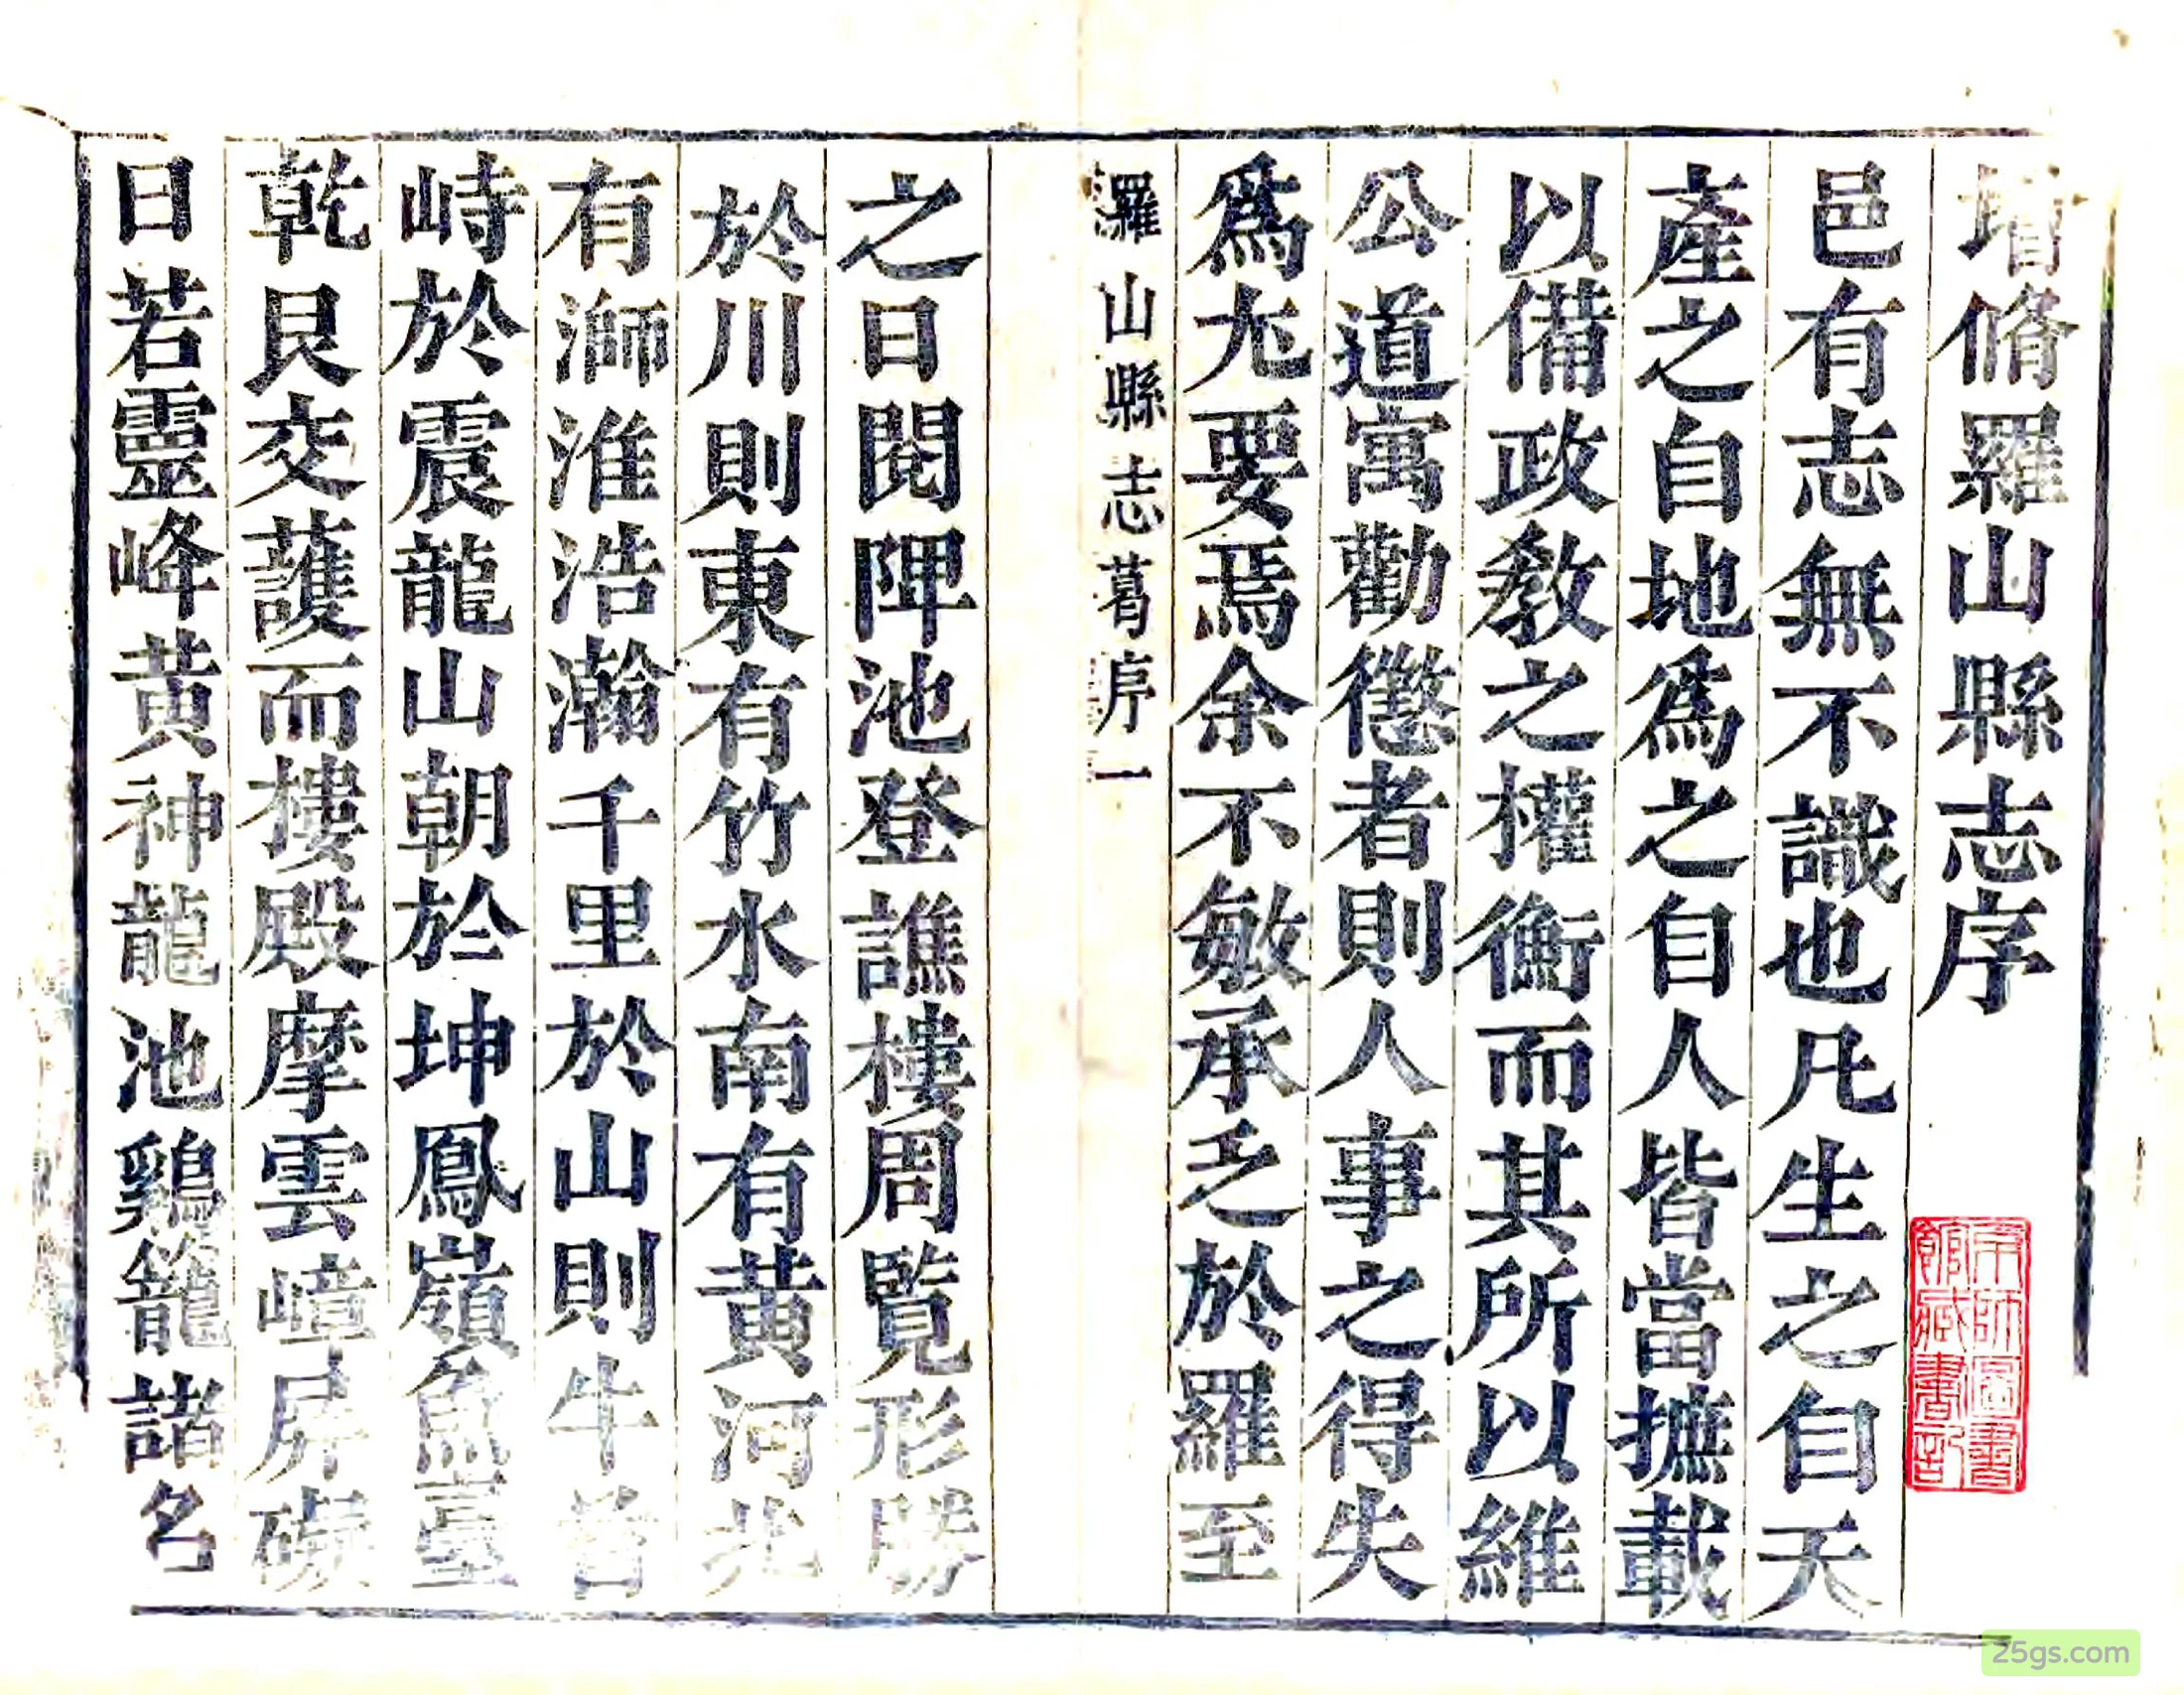 增脩羅山縣志序
邑有志無不識也凡生之自天
產之自地爲之自人皆當摭載
以備政教之權衡而其所以維
公道寓勸懲者則人事之得失
爲尤要焉余不敏承乏於羅至
羅山縣志葛序一
之日閱陴池登譙樓周覧形勝
於川則東有竹水南有黃河北
有溮淮浩瀚千里於山則牛首
峙於震龍山朝於坤鳳嶺魚臺
乾艮交護而樓殿摩雲嶂屏礙
日若靈峰黄神龍池鷄籠諸名
圖書
館藏書
25gs.com